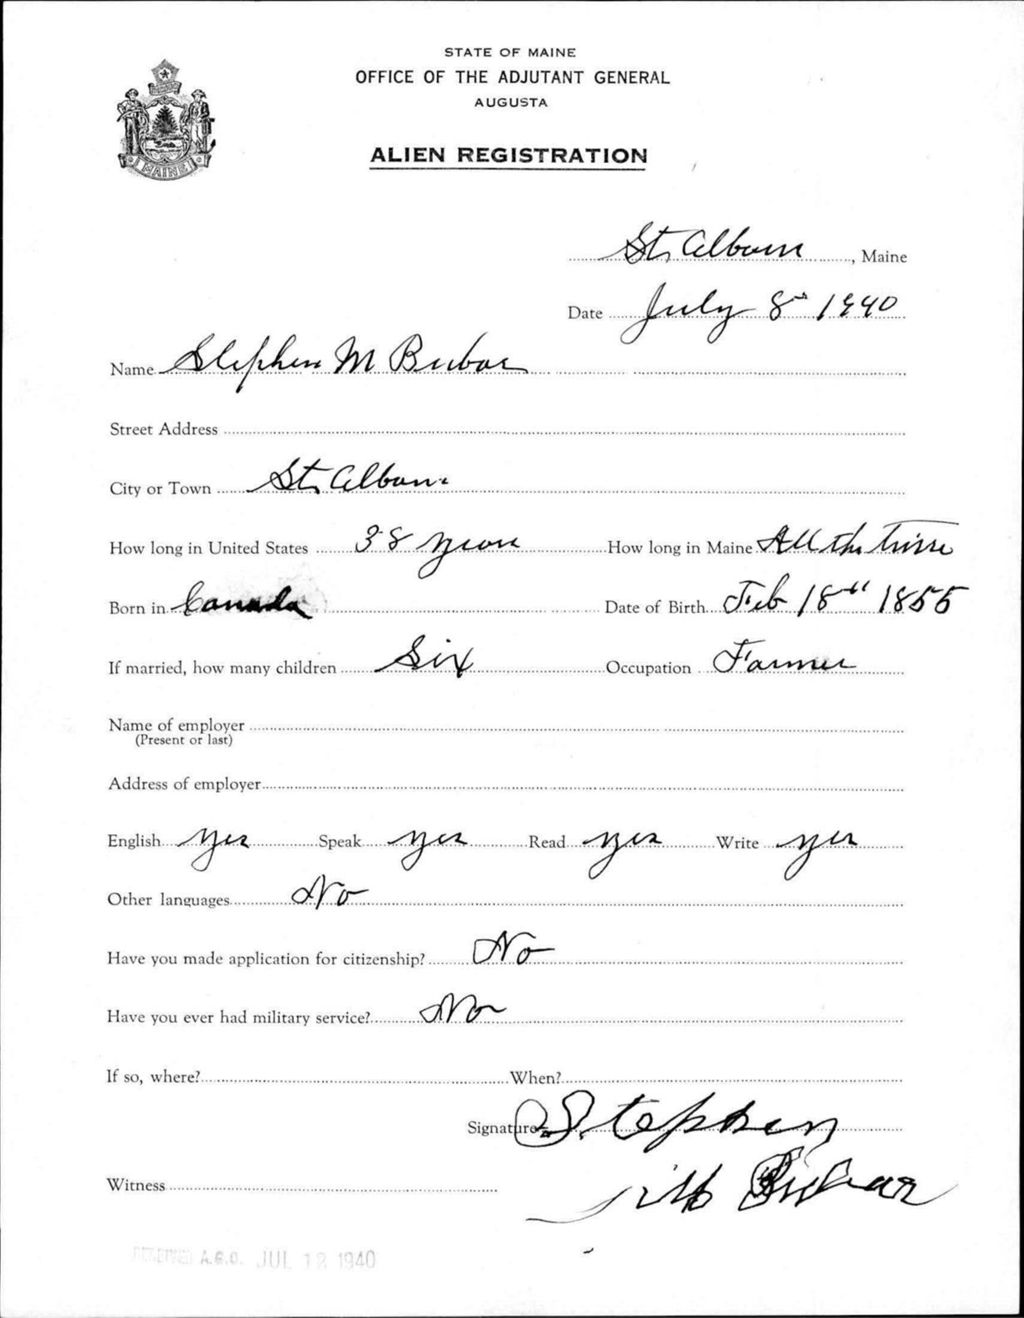 STATE OF MAINE
OFFICE OF THE ADJUTANT GENERAL
AUGUSTA
ALIEN REGISTRATION
MAINE
St. Albans, Maine
Date July 8th 1940
Name Stephen M Bubar
Street Address
City or Town St. Albans
How long in United States 38 years How long in Maine All the time
Born in Canada Date of Birth Feb 18th 1855
If married, how many children Six Occupation Farmer
Name of employer
(Present or last)
Address of employer
English yes Speak yes Read yes Write yes
Other languages No
Have you made application for citizenship? No
Have you ever had military service? No
If so, where? When?
Signature Stephen
M Bubar
Witness
RECEIVED A.G.O. JUL 12 1940